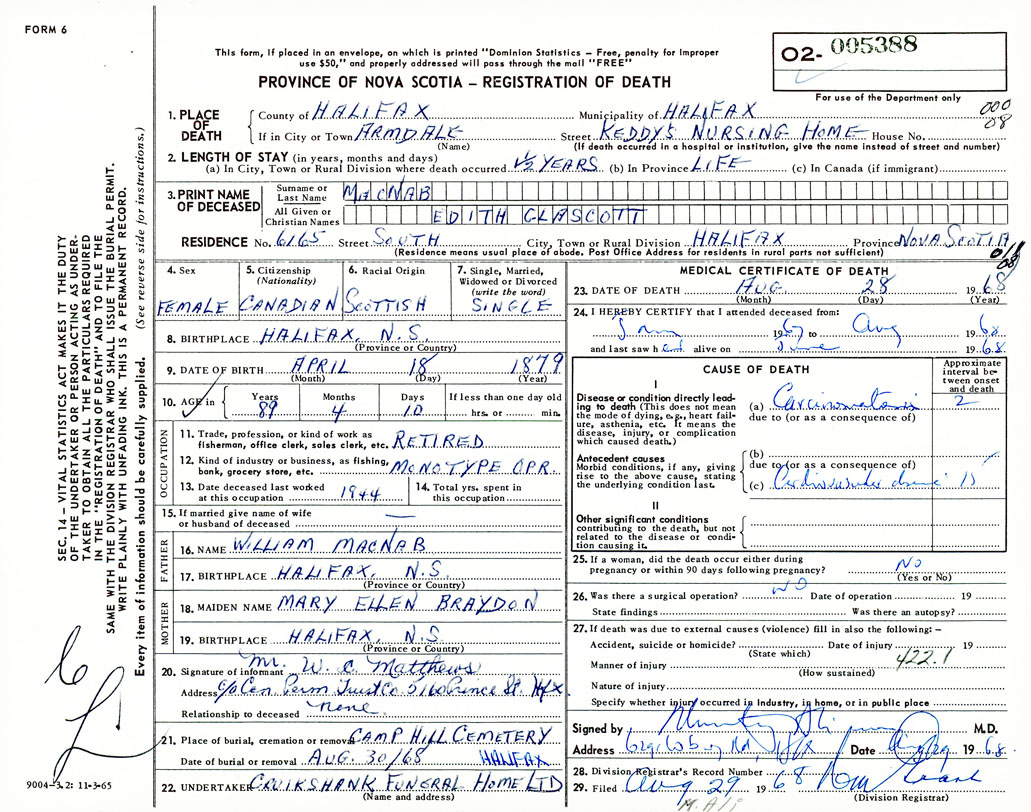 FORM 6
This form, if placed in an envelope, on which is printed "Dominion Statistics – Free, penalty for improper
use $50," and properly addressed will pass through the mail "FREE"
PROVINCE OF NOVA SCOTIA – REGISTRATION OF DEATH
02- 005388
For use of the Department only
000
08
1. PLACE OF DEATH
County of HALIFAX Municipality of HALIFAX
If in City or Town ARMDALE Street KEDDY'S NURSING HOME House No.
(Name) (If death occurred in a hospital or institution, give the name instead of street and number)
2. LENGTH OF STAY (in years, months and days)
(a) In City, Town or Rural Division where death occurred 1½ YEARS (b) In Province LIFE (c) In Canada (if immigrant)
3. PRINT NAME OF DECEASED
Surname or Last Name MACNAB
All Given or Christian Names EDITH GLASCOTT
RESIDENCE No. 6165 Street SOUTH City, Town or Rural Division HALIFAX Province NOVA SCOTIA
(Residence means usual place of abode. Post Office Address for residents in rural parts not sufficient)
4. Sex FEMALE
5. Citizenship (Nationality) CANADIAN
6. Racial Origin SCOTTISH
7. Single, Married, Widowed or Divorced (write the word) SINGLE
8. BIRTHPLACE HALIFAX, N.S.
(Province or Country)
9. DATE OF BIRTH APRIL 18 1879
(Month) (Day) (Year)
10. AGE in Years 89 Months 4 Days 10 If less than one day old hrs. or min.
OCCUPATION
11. Trade, profession, or kind of work as fisherman, office clerk, sales clerk, etc. RETIRED
12. Kind of industry or business, as fishing, bank, grocery store, etc. MONOTYPE OPR.
13. Date deceased last worked at this occupation 1944
14. Total yrs. spent in this occupation
15. If married give name of wife or husband of deceased —
FATHER
16. NAME WILLIAM MACNAB
17. BIRTHPLACE HALIFAX, N.S.
(Province or Country)
MOTHER
18. MAIDEN NAME MARY ELLEN BRAYDON
19. BIRTHPLACE HALIFAX, N.S.
(Province or Country)
20. Signature of informant Mr. W. C. Matthews
Address c/o Can. Perm Trust Co. 5160 Prince St. Hfx
Relationship to deceased none.
21. Place of burial, cremation or removal CAMP HILL CEMETERY
Date of burial or removal AUG. 30/68 HALIFAX
22. UNDERTAKER CRUIKSHANK FUNERAL HOME LTD
(Name and address)
MEDICAL CERTIFICATE OF DEATH
23. DATE OF DEATH AUG. 28 1968
(Month) (Day) (Year)
24. I HEREBY CERTIFY that I attended deceased from:
1967 to Aug 1968
and last saw her alive on June 1968
CAUSE OF DEATH
Approximate interval between onset and death
I
Disease or condition directly leading to death (This does not mean the mode of dying, e.g., heart failure, asthenia, etc. It means the disease, injury, or complication which caused death.)
(a) Carcinomatosis 2
due to (or as a consequence of)
Antecedent causes
Morbid conditions, if any, giving rise to the above cause, stating the underlying condition last.
(b)
due to (or as a consequence of)
(c)
II
Other significant conditions contributing to the death, but not related to the disease or condition causing it.
25. If a woman, did the death occur either during pregnancy or within 90 days following pregnancy? NO
(Yes or No)
26. Was there a surgical operation? NO Date of operation 19
State findings Was there an autopsy?
27. If death was due to external causes (violence) fill in also the following: –
Accident, suicide or homicide? Date of injury 19
(State which)
Manner of injury 422.1
(How sustained)
Nature of injury
Specify whether injury occurred in industry, in home, or in public place
Signed by M.D.
Address Hfx Date 1968
28. Division Registrar's Record Number
29. Filed Aug 29 1968
(Division Registrar)
M. Ali
SEC. 14 – VITAL STATISTICS ACT MAKES IT THE DUTY
OF THE UNDERTAKER OR PERSON ACTING AS UNDER-
TAKER TO OBTAIN ALL THE PARTICULARS REQUIRED
IN THE "REGISTRATION OF DEATH" AND TO FILE THE
SAME WITH THE DIVISION REGISTRAR WHO SHALL ISSUE THE BURIAL PERMIT.
WRITE PLAINLY WITH UNFADING INK. THIS IS A PERMANENT RECORD.
Every item of information should be carefully supplied. (See reverse side for instructions.)
9004-3.2: 11-3-65